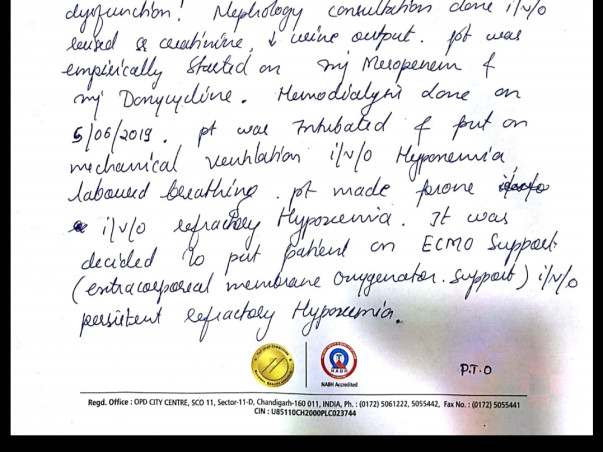 dysfunction. Nephrology consultation done i/v/o
raised s. creatinine, ↓ urine output. pt was
empirically started on inj Meropenem &
inj Doxycycline. Hemodialysis done on
5/06/2019. pt was Intubated & put on
mechanical ventilation i/v/o Hypoxemia
laboured breathing. pt made prone
i/v/o refractory Hypoxemia. It was
decided to put patient on ECMO Support
(extracorporeal membrane oxygenator. support) i/v/o
persistent refractory Hypoxemia.
NABH
NABH Accredited
P.T.O
Regd. Office : OPD CITY CENTRE, SCO 11, Sector-11-D, Chandigarh-160 011, INDIA, Ph. : (0172) 5061222, 5055442, Fax No. : (0172) 5055441
CIN : U85110CH2000PLC023744